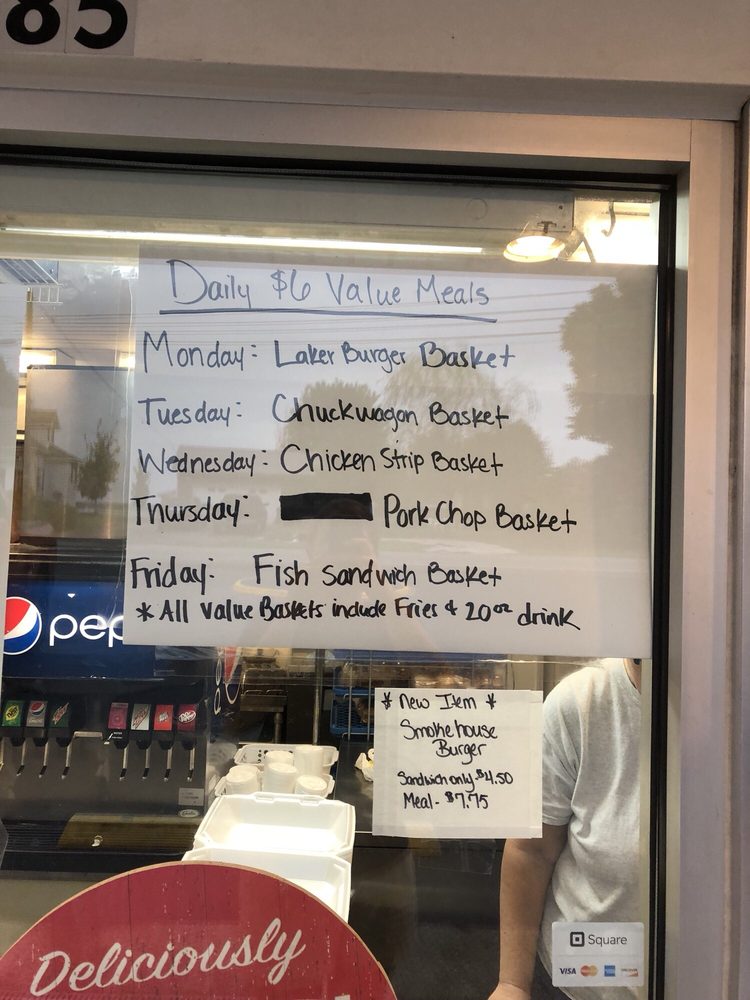 85
Daily $6 Value Meals
Monday: Laker Burger Basket
Tuesday: Chuckwagon Basket
Wednesday: Chicken Strip Basket
Thursday: Pork Chop Basket
Friday: Fish Sandwich Basket
* All Value Baskets include Fries & 20oz drink
pep
* New Item *
Smokehouse
Burger
Sandwich only-$4.50
Meal- $7.75
Deliciously
Square
VISA